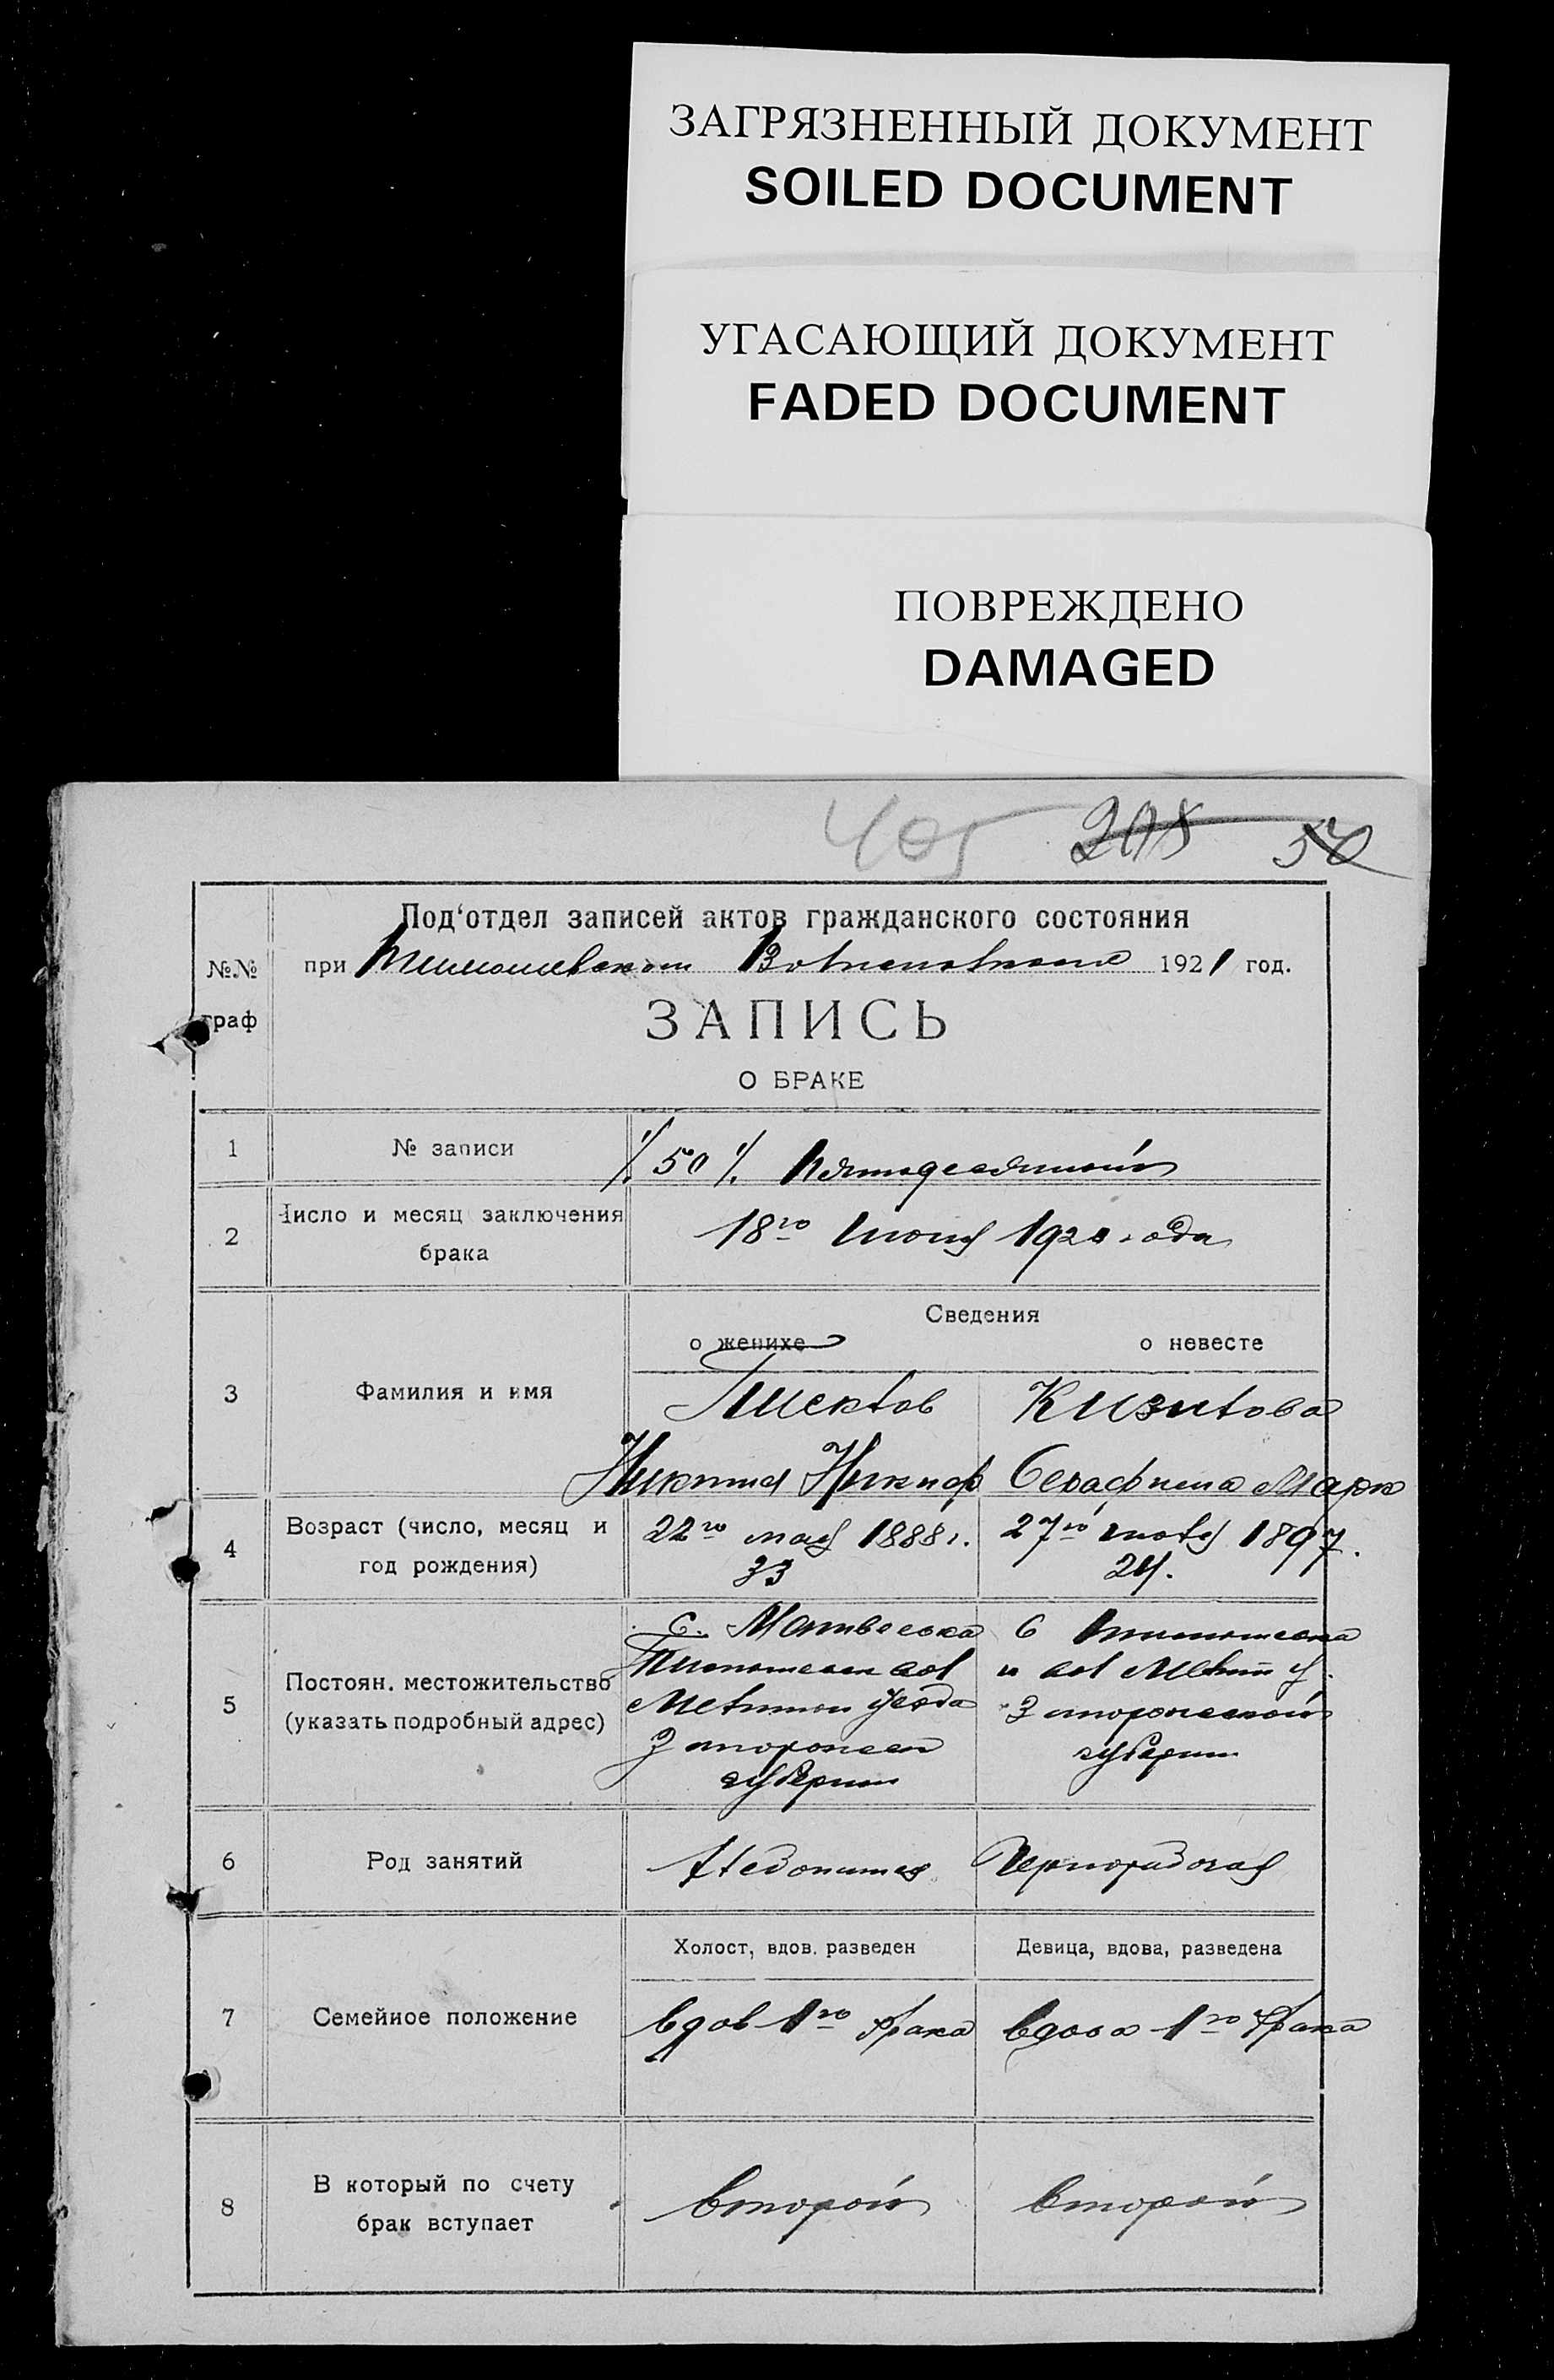 ЗАГРЯЗНЕННЫЙ ДОКУМЕНТ
SOILED DOCUMENT
УГАСАЮЩИЙ ДОКУМЕНТ
FADED DOCUMENT
ПОВРЕЖДЕНО
DAMAGED
405 208 50
Под‘отдел записей актов гражданского состояния
№№ при Тимошевском Волисполкоме 1921 год.
граф
ЗАПИСЬ
О БРАКЕ
1 № записи % 50 % Пятьдесятый
2 Число и месяц заключения брака
18го июня 1921 года
Сведения
о женихе о невесте
3 Фамилия и имя
Никита Никиф Серафима Марк
4 Возраст (число, месяц и
год рождения)
22го мая 1888 г. 27го июля 1897.
33 24.
5 Постоян. местожительство
(указать подробный адрес)
С. Матвеевка С Тимошевка
Тимошевск вол и вол Мелит у.
Мелитоп уезда Запорожской
Запорожск губернии
губернии
6 Род занятий
Хлебопашец Чернорабочая
Холост, вдов. разведен Девица, вдова, разведена
7 Семейное положение
вдов 1го брака вдова 1го брака
8 В который по счету
брак вступает
второй второй